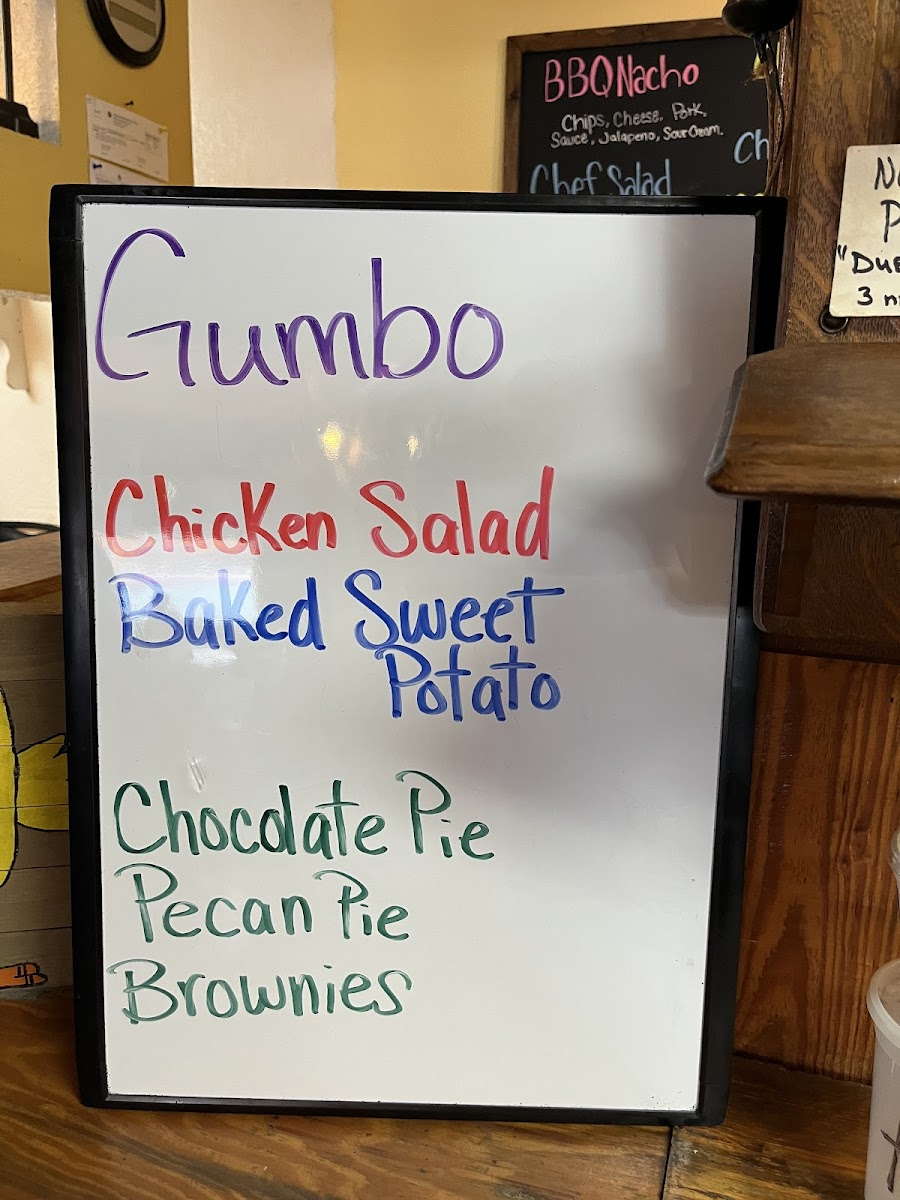 BBQ Nacho
Chips, Cheese, Pork,
Sauce, Jalapeno, Sour Cream.
Chef Salad
Gumbo
Chicken Salad
Baked Sweet
Potato
Chocolate Pie
Pecan Pie
Brownies
3